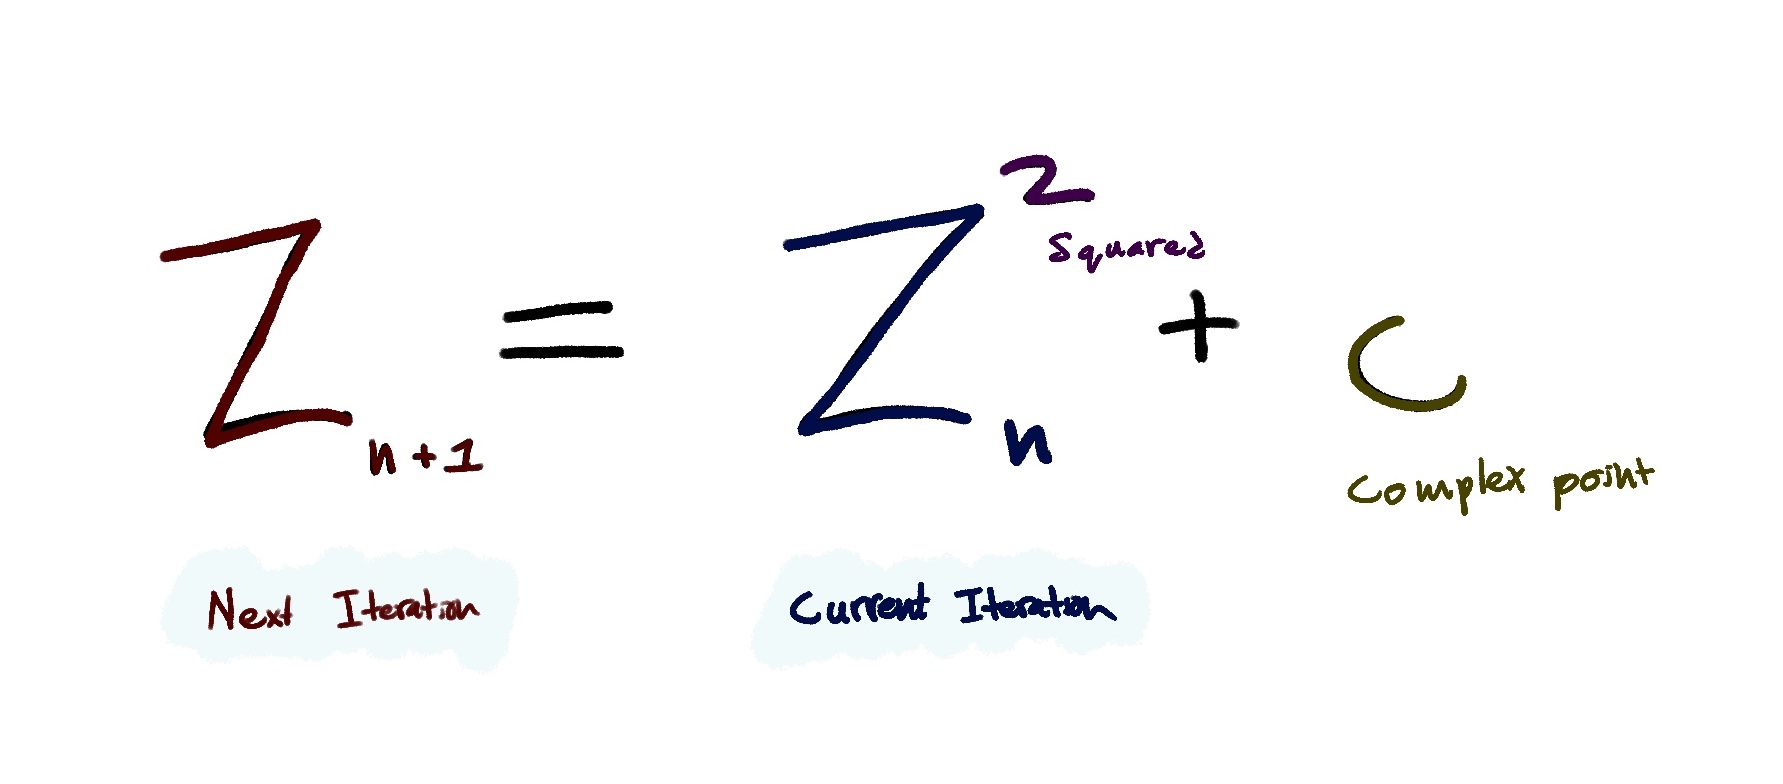 Z_{n+1} = Z_n^2 + C
Squared
Complex point
Next Iteration
Current Iteration